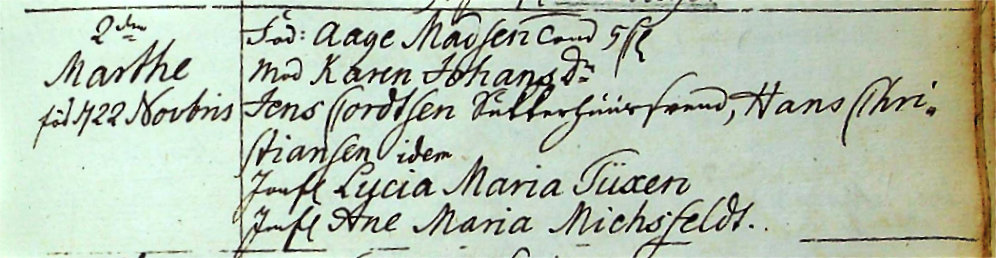 2den
Marthe
föd d 22 Novbris
Fad: Aage Madsen Cond 5
Mod Karen Johansdr
Jens Cordtsen Sukkerhuussvend, Hans Chri-
stiansen idem
Jomfr Lycia Maria Tüxen
Jomfr Ane Maria Michsfeldt.